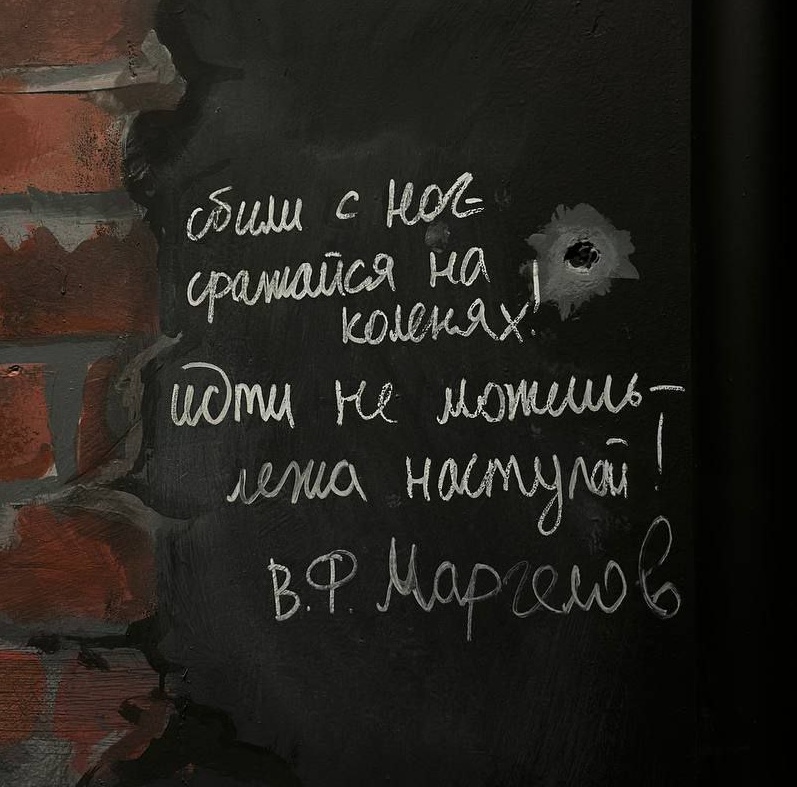 сбили с ног-
сражайся на
коленях!
идти не можешь-
лежа наступай!
В.Ф. Маргелов